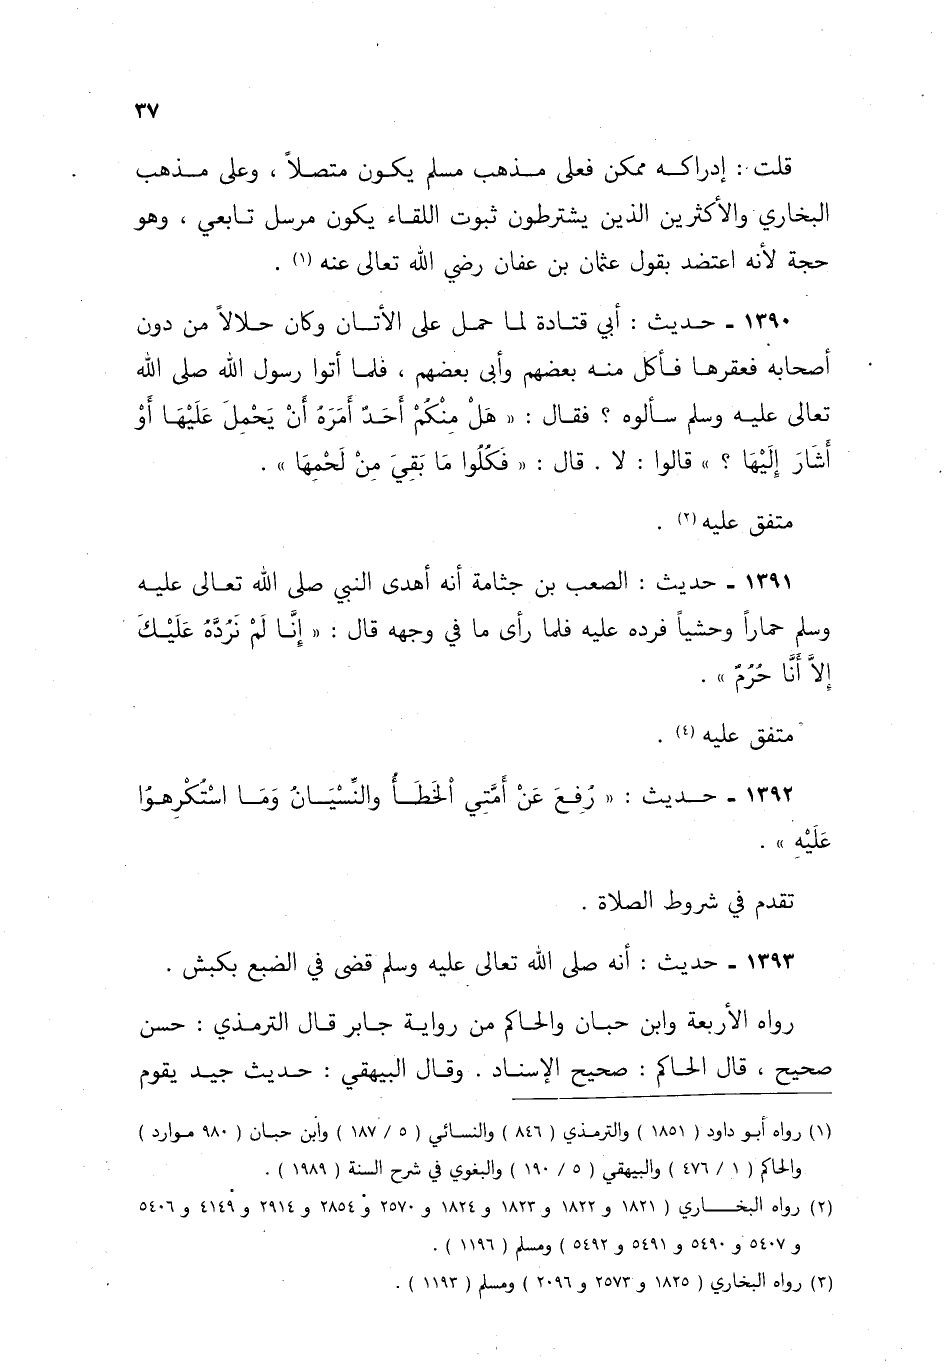 ٣٧
قلت : إدراكـــه ممكن فعلى مـذهب مسلم يكـون متصـلاً ، وعلى مـذهب
البخاري والأكثرين الذين يشترطون ثبوت اللقـاء يكون مرسل تـابعي ، وهو
حجة لأنه اعتضد بقول عثمان بن عفان رضي الله تعالى عنه (١) .
١٣٩٠ ـ حـديث : أبي قتـادة لمـا حمـل على الأتـان وكان حـلالاً من دون
أصحابه فعقرهـا فـأكل منـه بعضهم وأبى بعضهم ، فلمـا أتوا رسول الله صلى الله
تعالى عليـه وسلم سـألوه ؟ فقـال : « هَلْ مِنْكُمْ أَحَدٌ أَمَرَهُ أَنْ يَحْمِلَ عَلَيْهَـا أَوْ
أَشَارَ إِلَيْهَا ؟ » قالوا : لا . قال : « فَكُلُوا مَا بَقِيَ مِنْ لَحْمِهَا » .
متفق عليه (٢) .
١٣٩١ ـ حديث : الصعب بن جثامة أنه أهدى النبي صلى الله تعـالى عليـه
وسلم حماراً وحشياً فرده عليه فلما رأى ما في وجهه قال : « إِنَّـا لَمْ نَرُدَّهُ عَلَيْـكَ
إِلاَّ أَنَّا حُرُمٌ » .
متفق عليه (٤) .
١٣٩٢ ـ حــديث : « رُفِـعَ عَنْ أُمَّتِي الْخَطَـأُ والنِّسْيَـانُ وَمَـا اسْتُكْرِهـوُا
عَلَيْهِ » .
تقدم في شروط الصلاة .
١٣٩٣ ـ حديث : أنه صلى الله تعالى عليه وسلم قضى في الضبع بكبش .
رواه الأربعة وابن حبـان والحـاكم من روايـة جـابر قـال الترمـذي : حسن
صحيح ، قال الحـاكم : صحيح الإسنـاد . وقـال البيهقي : حـديث جيـد يقوم
(١) رواه أبـو داود ( ١٨٥١ ) والترمـذي ( ٨٤٦ ) والنسـائي ( ٥ / ١٨٧ ) وابن حبـان ( ٩٨٠ مـوارد )
والحاكم ( ١ / ٤٧٦ ) والبيهقي ( ٥ / ١٩٠ ) والبغوي في شرح السنة ( ١٩٨٩ ) .
(٢) رواه البخـــاري ( ١٨٢١ و ١٨٢٢ و ١٨٢٣ و ١٨٢٤ و ٢٥٧٠ و ٢٨٥٤ و ٢٩١٤ و ٤١٤٩ و ٥٤٠٦
و ٥٤٠٧ و ٥٤٩٠ و ٥٤٩١ و ٥٤٩٢ ) ومسلم ( ١١٩٦ ) .
(٣) رواه البخاري ( ١٨٢٥ و ٢٥٧٣ و ٢٠٩٦ ) ومسلم ( ١١٩٣ ) .